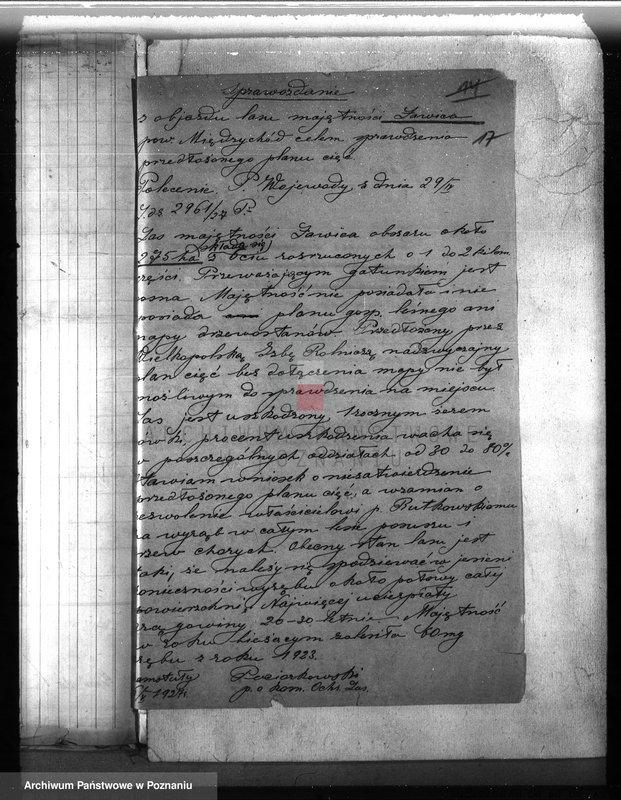 Sprawozdanie
14
z objazdu lasu majętności Ławica
17
pow. Międzychód celem sprawdzenia
przedłożonego planu cięć.
Polecenie P. Wojewody z dnia 29/IV
2961/24
Las majętności Ławica obszaru około
składa się
275 ha z 5ciu rozrzuconych o 1 do 2 kilom
części. Przeważającym gatunkiem jest
osna. Majętność nie posiadała i nie
posiada planu gosp. leśnego ani
mapy drzewostanów. Przedłożony przez
Wielkopolską Izbę Rolniczą nadzwyczajny
plan cięć bez dołączenia mapy nie był
możliwym do sprawdzenia na miejscu.
Las jest uszkodzony żerem
ówki, procent uszkodzenia wacha się
w poszczególnych oddziałach od 30 do 80%
Stawiam wniosek o niezatwierdzenie
przedłożonego planu cięć, a wzamian o
zezwolenie właścicielowi p. Rutkowskiemu
na wyrąb w całym lesie posuszu i
drzew chorych. Obecny stan lasu jest
taki, że należy się spodziewać w jesieni
konieczności wyrębu około połowy całej
powierzchni. Najwięcej ucierpiały
20-30 letnie. Majętność
w roku bieżącym zalesiła 60 mg
zrębu z roku 1923.
amotuły
1924.
Pociorkowski
p.o kom. Ochr. Las.
ARCHIWUM PAŃSTWOWE
POZNANIU
Archiwum Państwowe w Poznaniu